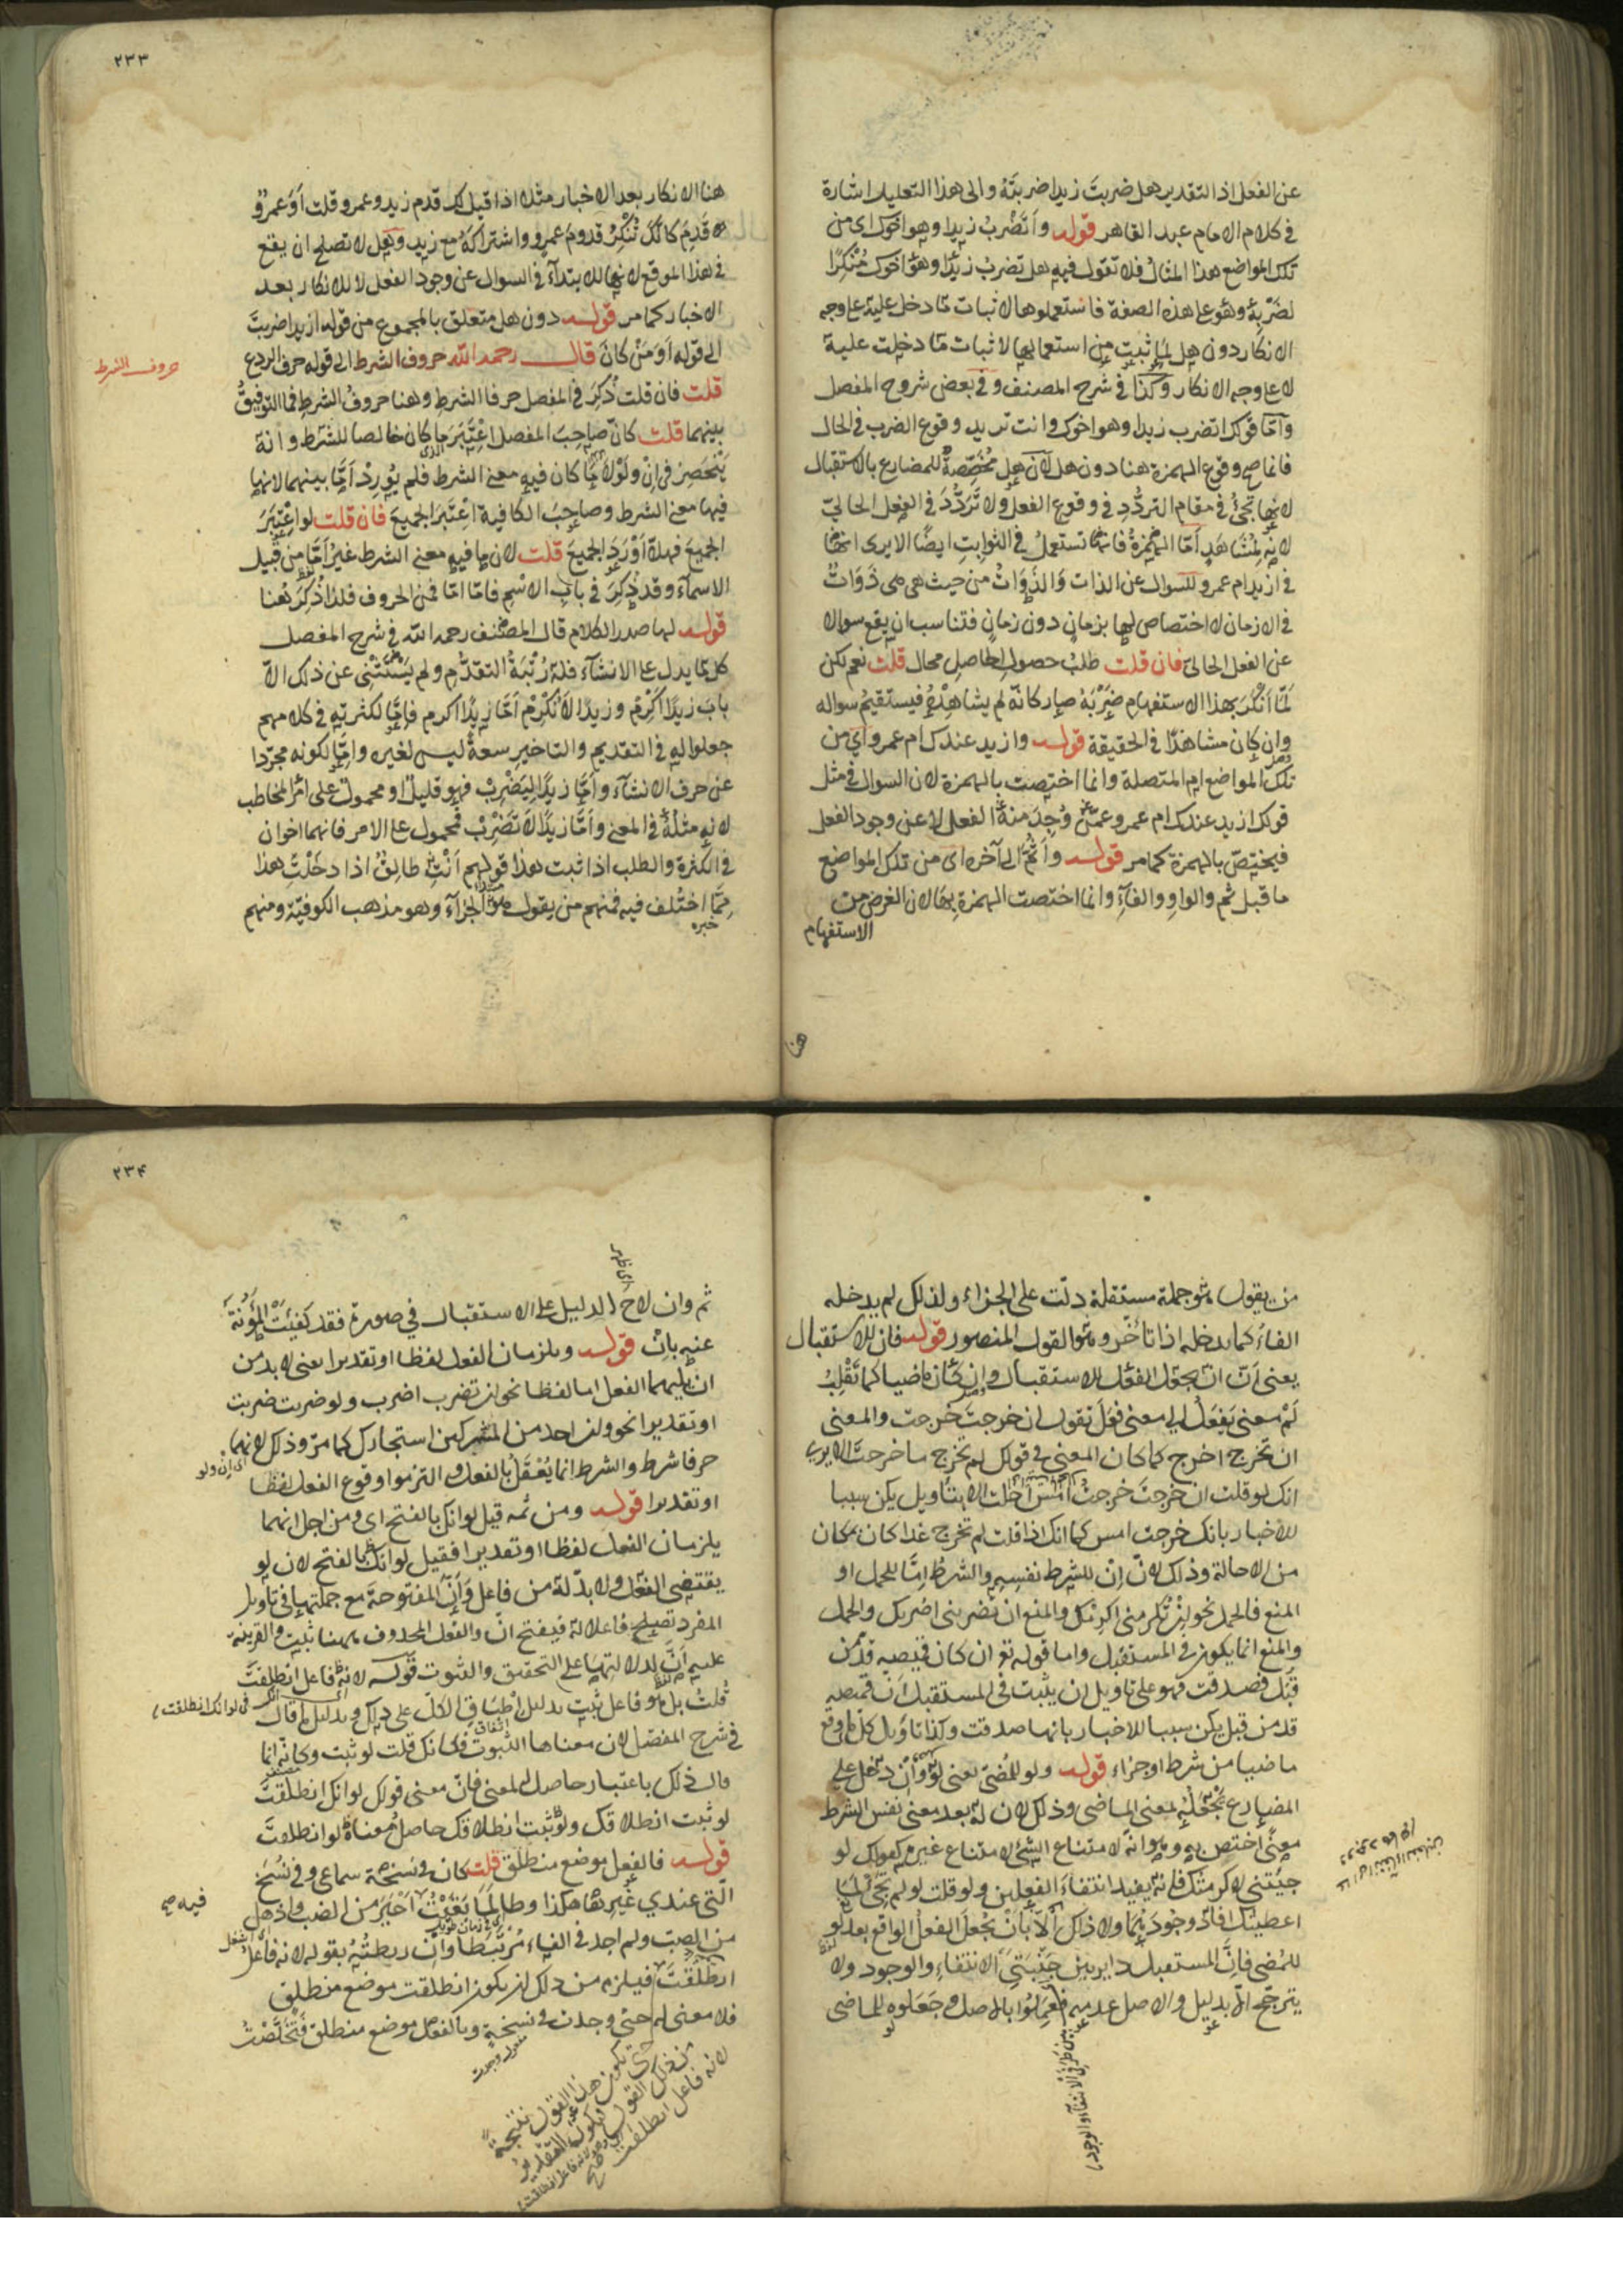 عن الفعل اذ التقدير هل ضربتَ زيدا ضربتَهُ والى هذا التعليل اشارة
فى كلام الامام عبد القاهر قوله وأَتَضْرِبُ زيدا وهو اخوك اى من
تلك المواضع هذا المثالُ فلا تقول فيه هل تضربُ زيدًا وهو اخوك مُنْكِرًا
لضَرْبِهِ وهو على هذه الصفة فاستعملوها لاثبات ما دخل عليه على وجه
الانكار دون هل لما ثبت من استعمالها لاثبات ما دخلت عليه
لا على وجه الانكار وكذا فى شرح المصنف وفى بعض شروح المفصل
وأمّا قولك اتضرب زيدا وهو اخوك وانت تريد وقوع الضرب فى الحال
فانما صح وقوع الهمزة هنا دون هل لان هل مُخَصِّصةٌ للمضارع بالاستقبال
لانها تجئُ فى مقام التردُّد فى وقوع الفعل ولا تَرَدُّدَ فى الفعل الحالىّ
لانه لمُشَاهَدٍ أمّا الهمزةُ فانها تستعملُ فى الثوابتِ ايضًا الا يرى انها
فى ازيد ام عمرو للسوال عن الذات والذَوَاتُ من حيث هى هى ذَوَاتٌ
فى الازمان لا اختصاص لها بزمانٍ دون زمانٍ فتناسب ان يقع سوالا
عن الفعل الحالىّ فان قلت طلبُ حصول الحاصلِ محال قلت نعم لكن
لَمّا أَنْكَرَ بهذا الاستفهامِ ضَرْبَهُ صار كانه لم يشاهِدْهُ فيستقيمُ سواله
وان كان مشاهدًا فى الحقيقة قوله وازيد عندك ام عمرو اى من
تلك المواضع ام المتصلة وانما اختصت بالهمزة لان السوال فى مثل
قولك ازيد عندك ام عمرو عمّن وُجِدَ منهُ الفعل لا عن وجود الفعل
فيختصّ بالهمزة كما مر قوله وأَثُمَّ الى آخره اى من تلك المواضع
ما قبل ثم والواو والفآءِ وانما اختصت الهمزة بها لان الغرض من
الاستفهام
هنا
٢٣٣
هنا الانكار بعد الاخبار مثلا اذا قيل لك قدم زيد وعمرو قلت أَوَعمرٌو
قَدِمَ كانّكَ تُنْكِرُ قدومَ عمرٍو واشتراكَهُ مع زيدٍ وهل لا تصلح ان يقع
فى هذا الموقع لانها للابتدآءِ فى السوال عن وجود الفعل لا للانكار بعد
الاخبار كما مر قوله دون هل متعلق بالمجموع من قوله ازيدا ضربتَ
الى قوله أَوَمَنْ كانَ قال رحمه الله حروف الشرط الى قوله حرف الردع
حروف الشرط
قلت فان قلت ذُكِرَ فى المفصل حرفا الشرط وهنا حروفُ الشرطِ فما التوفيقُ
بينهما قلت كانّ صاحبَ المفصل اعْتَبَرَ ما كان خالصا للشرط وانه
يَنْحَصِرُ فى اِنْ ولَوْ لا ما كان فيه معنى الشرط فلم يُورِدْ أمّا بينهما لانها
فيها معنى الشرط وصاحبُ الكافية اعْتَبَرَ الجميعَ فان قلت لو اعْتَبَرَ
الجميعَ فهلّا أَوْرَدَ الجميعَ قلت لان ما فيه معنى الشرط غيرُ أمّا من قبيل
الاسمآء وقد ذُكِرَ فى بابِ الاسْمِ فامّا امّا فمن الحروف فلذا ذُكِرَ هُنا
قوله لها صدر الكلام قال المصنف رحمه الله فى شرح المفصل
كل ما يدل على الانشآء فله رُتْبَةُ التقدُّمِ ولم يَسْتَثْنِى عن ذلك الّا
بابَ زيدًا اَكْرِمْ وزيدًا لا تُكْرِمْ أمّا زيدًا اكرم فامّا لكثرتِهِ فى كلامهم
جعلوا له فى التقديم والتاخير سعةً ليس لغيره وامّا لكونه مجرّدا
عن حرف الانشآء وأمّا زيدًا لِيَضْرِبْ فهو قليل او محمول على امر المخاطب
لانه مثلُهُ فى المعنى وأمّا زيدًا لا تَضْرِبْ فمحمول على الامر فانهما اخوان
فى الكثرة والطلب اذا ثبت هذا قولهم أَنْتِ طالِقٌ اذا دخلْتِ هذا
مِمّا اختُلف فيه فمنهم من يقول هو الجزآء وهو مذهب الكوفيّة ومنهم
خبره
من يقول هو جملة مستقلة دلّت على الجزاء ولذلك لم يدخله
الفاءُ كما يدخله اذا تأخّر وهو القول المنصور قوله فان للاستقبال
يعنى أنّ ان تجعل الفعل للاستقبال وان كان ماضيا كما تَقْلِبُ
لَمْ معنى يَفْعَلُ الى معنى فَعَلَ تقول ان خرجتَ خرجت والمعنى
ان تخرج اخرج كما كان المعنى فى قولك لم تخرج ما خرجتَ الا يرى
انك لو قلت ان خرجتَ خرجتُ امس احلت الا بتأويل يكن سببا
للاخبار بانك خرجت امس كما انك اذا قلت لم تخرج غدا كان مكان
من الاحالة وذلك لانّ اِنْ للشرط نفسِهِ والشرطُ امّا للحمل او
المنع فالحمل نحو اِنْ تُكرمنى اكرمْكَ والمنع ان تضربنى اضربك والحمل
والمنع انما يكون فى المستقبل واما قوله تع ان كان قميصه قدّ من
قُبُل فصدقت فهو على تاويل ان يثبت فى المستقبل أنّ قميصه
قد من قبل يكن سببا للاخبار بانها صدقت وكذا تأويل كل ما وقع
ماضيا من شرط او جزاء قوله ولو للمُضىّ يعنى لَوْ وأنْ دخل على
المضارع تجعلُهُ لمعنى الماضى وذلك لان له بعد معنى نفس الشرط
معنًى اختص به وهو انه لامتناع الشئ لامتناع غيره كقولك لو
جيئتنى لاكرمتك فانه يفيد انتفاءَ الفعلين ولو قلت لو لم تجئْ لَمَا
اعطيتك افاد وجودَهُما ولا ذلك الّا بأن يُجْعَلَ الفعلُ الواقع بعد لو
للمُضى فانّ المستقبل داير بين جَنْبَتَىِ الانتفاءِ والوجود ولا
يترجّح الّا بدليل والاصل عدمه فعَمِلُوا بالاصل وجَعَلوه للماضى
بين طرفى الانتفآء والوجود
٢٣۴
ثم وان لاح الدليل على الاستقبال فى صورة فقد كَفَيْتَ المَؤُنةَ
عنه بانْ قوله ويلزمان الفعل لفظا او تقديرا يعنى لا بد من
ان يليهما الفعل اما لفظا نحو ان تضرب اضرب ولو ضربت ضربت
او تقديرا نحو وان احد من المشركين استجارك كما مرّ وذلك لانهما
اى ان ولو
حرفا شرط والشرط انما يُعْقَلُ بالفعل فالتزموا وقوع الفعل لفظا
او تقديرا قوله ومن ثمه قيل لو انك بالفتح اى ومن اجل انهما
يلزمان الفعل لفظا او تقديرا فقيل لو انك بالفتح لان لو
يقتضى الفعل ولا بد له من فاعل وأنّ المفتوحةَ مع جملتها فى تاويل
المفرد تصلح فاعلا له فيفتح انّ والفعل المحذوف ههنا ثبت والقرينة
عليه أنّ لدلالتها على التحقيق والثبوت قوله لانه فاعل انطلقتَ
قلتُ بل هو فاعل ثبت بدليل اطباق الكلّ على ذلك وبدليل ما قال
فى لو انك انطلقت
فى شرح المفصل لان معناها الثبوت فكانك قلت لو ثبت وكانه انما
قال ذلك باعتبار حاصل المعنى فانّ معنى قولك لو انك انطلقتَ
لو ثبت انطلاقك ولو ثبت انطلاقك حاصلُ معناهُ لو انطلقتَ
قوله فالفعل موضع منطلق قلت كان فى نسخة سماعى وفى نُسَخ
الّتى عندي غيرِها هكذا وطالما بَقَيْتُ أَحْيَرَ من الضب واذهل
فيه صح
من الصبّ ولم اجد فى الفاء مُرْتَبَطًا وان ربطتُهُ بقوله لانه فاعل
انطلقتَ فيلزم من ذلك ان يكون انطلقت موضع منطلق
فلا معنى له حتى وجدت فى نسخةٍ وبالفعل موضع منطلق فتخلّصْتُ
مفعول وجدت
من ذلك القول
لانه فاعل انطلقت